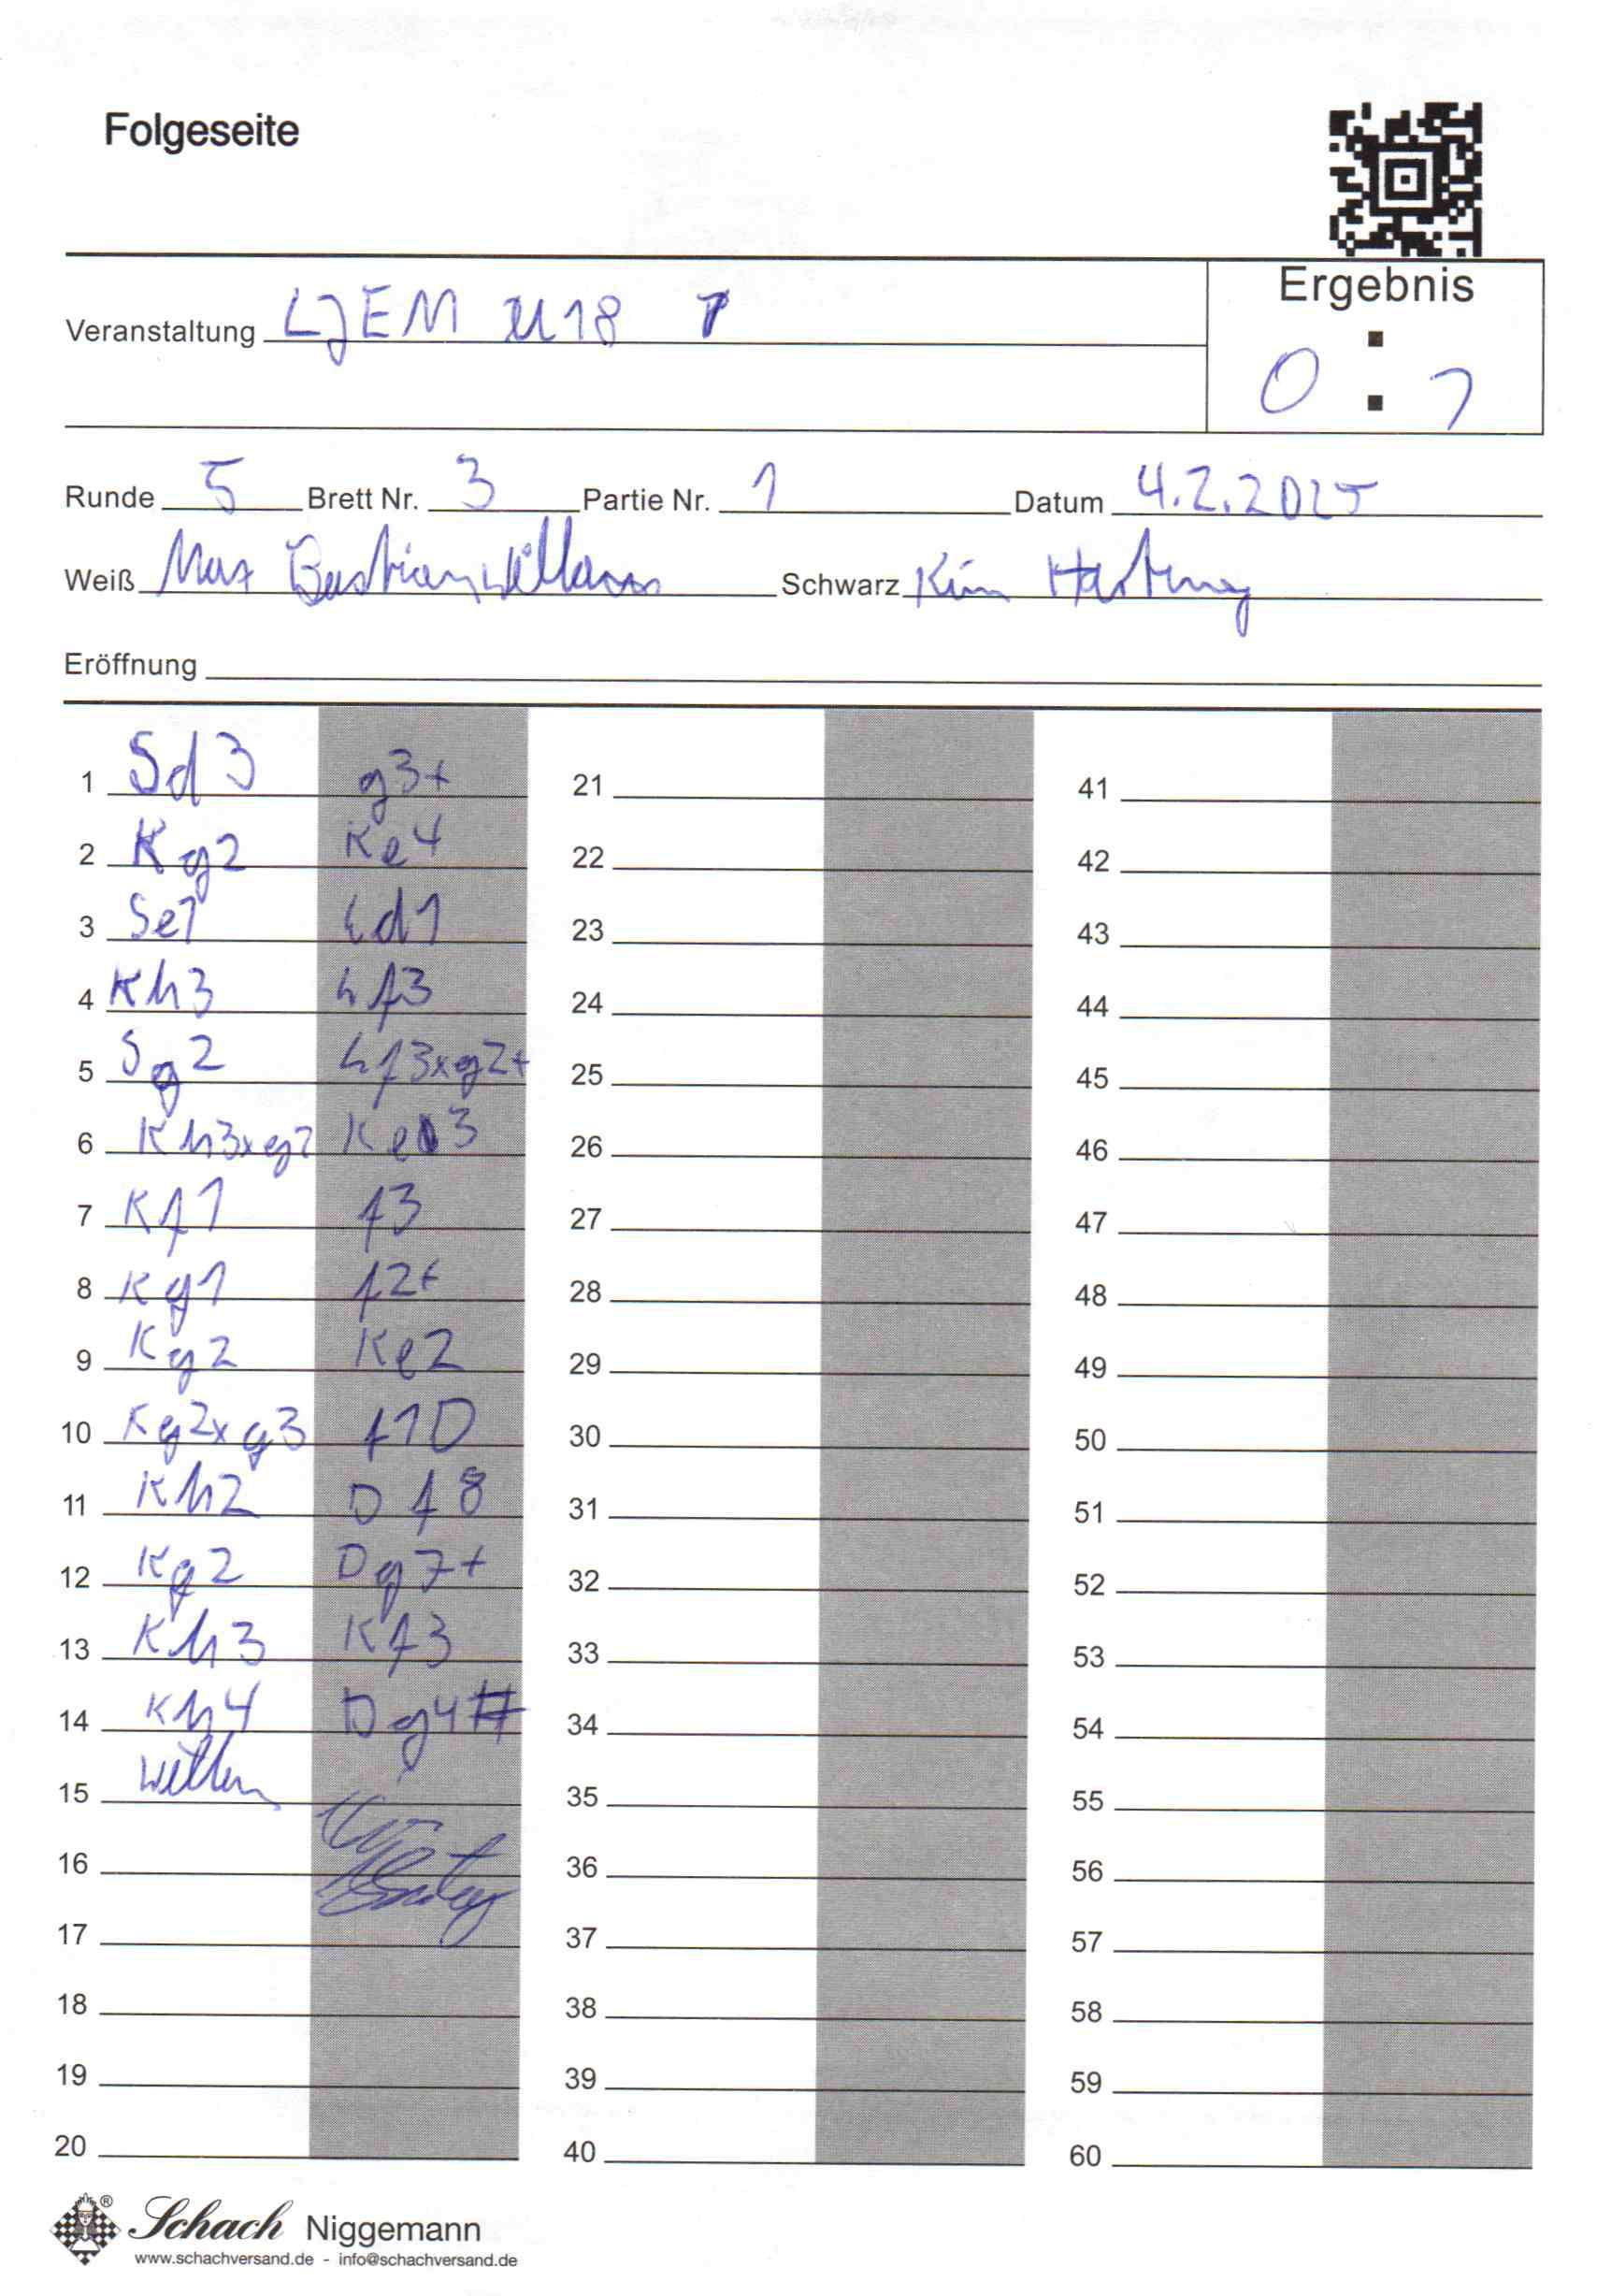 Folgeseite
Ergebnis
Veranstaltung LJEM U18
0 : 1
Runde 5 Brett Nr. 3 Partie Nr. 1 Datum 4.2.2025
Weiß Max Bastian Schwarz Kim Hartung
Eröffnung
1 Sd3 g3+ 21 41
2 Kg2 Ke4 22 42
3 Se1 Ld1 23 43
4 Kh3 Lf3 24 44
5 Sg2 Lf3xg2+ 25 45
6 Kh3xg2 Ke3 26 46
7 Kf1 f3 27 47
8 Kg1 f2+ 28 48
9 Kg2 Ke2 29 49
10 Kg2xg3 f1D 30 50
11 Kh2 Df8 31 51
12 Kg2 Dg7+ 32 52
13 Kh3 Kf3 33 53
14 Kh4 Dg4# 34 54
15 35 55
16 36 56
17 37 57
18 38 58
19 39 59
20 40 60
Schach Niggemann
www.schachversand.de - info@schachversand.de